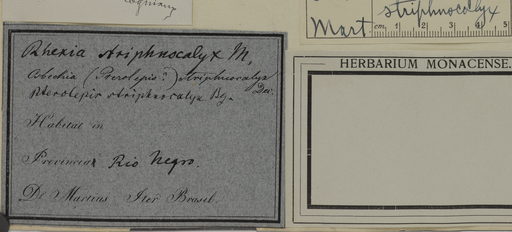 striphnocalyx
Mart. cm. 1 2 3 4 5
Rhexia striphnocalyx M.
(Pterolepis?) striphnocalyx Dec.
Pterolepis striphnocalyx Bg.
Habitat in
Provincia Rio Negro.
De Martius Iter Brasil.
HERBARIUM MONACENSE.